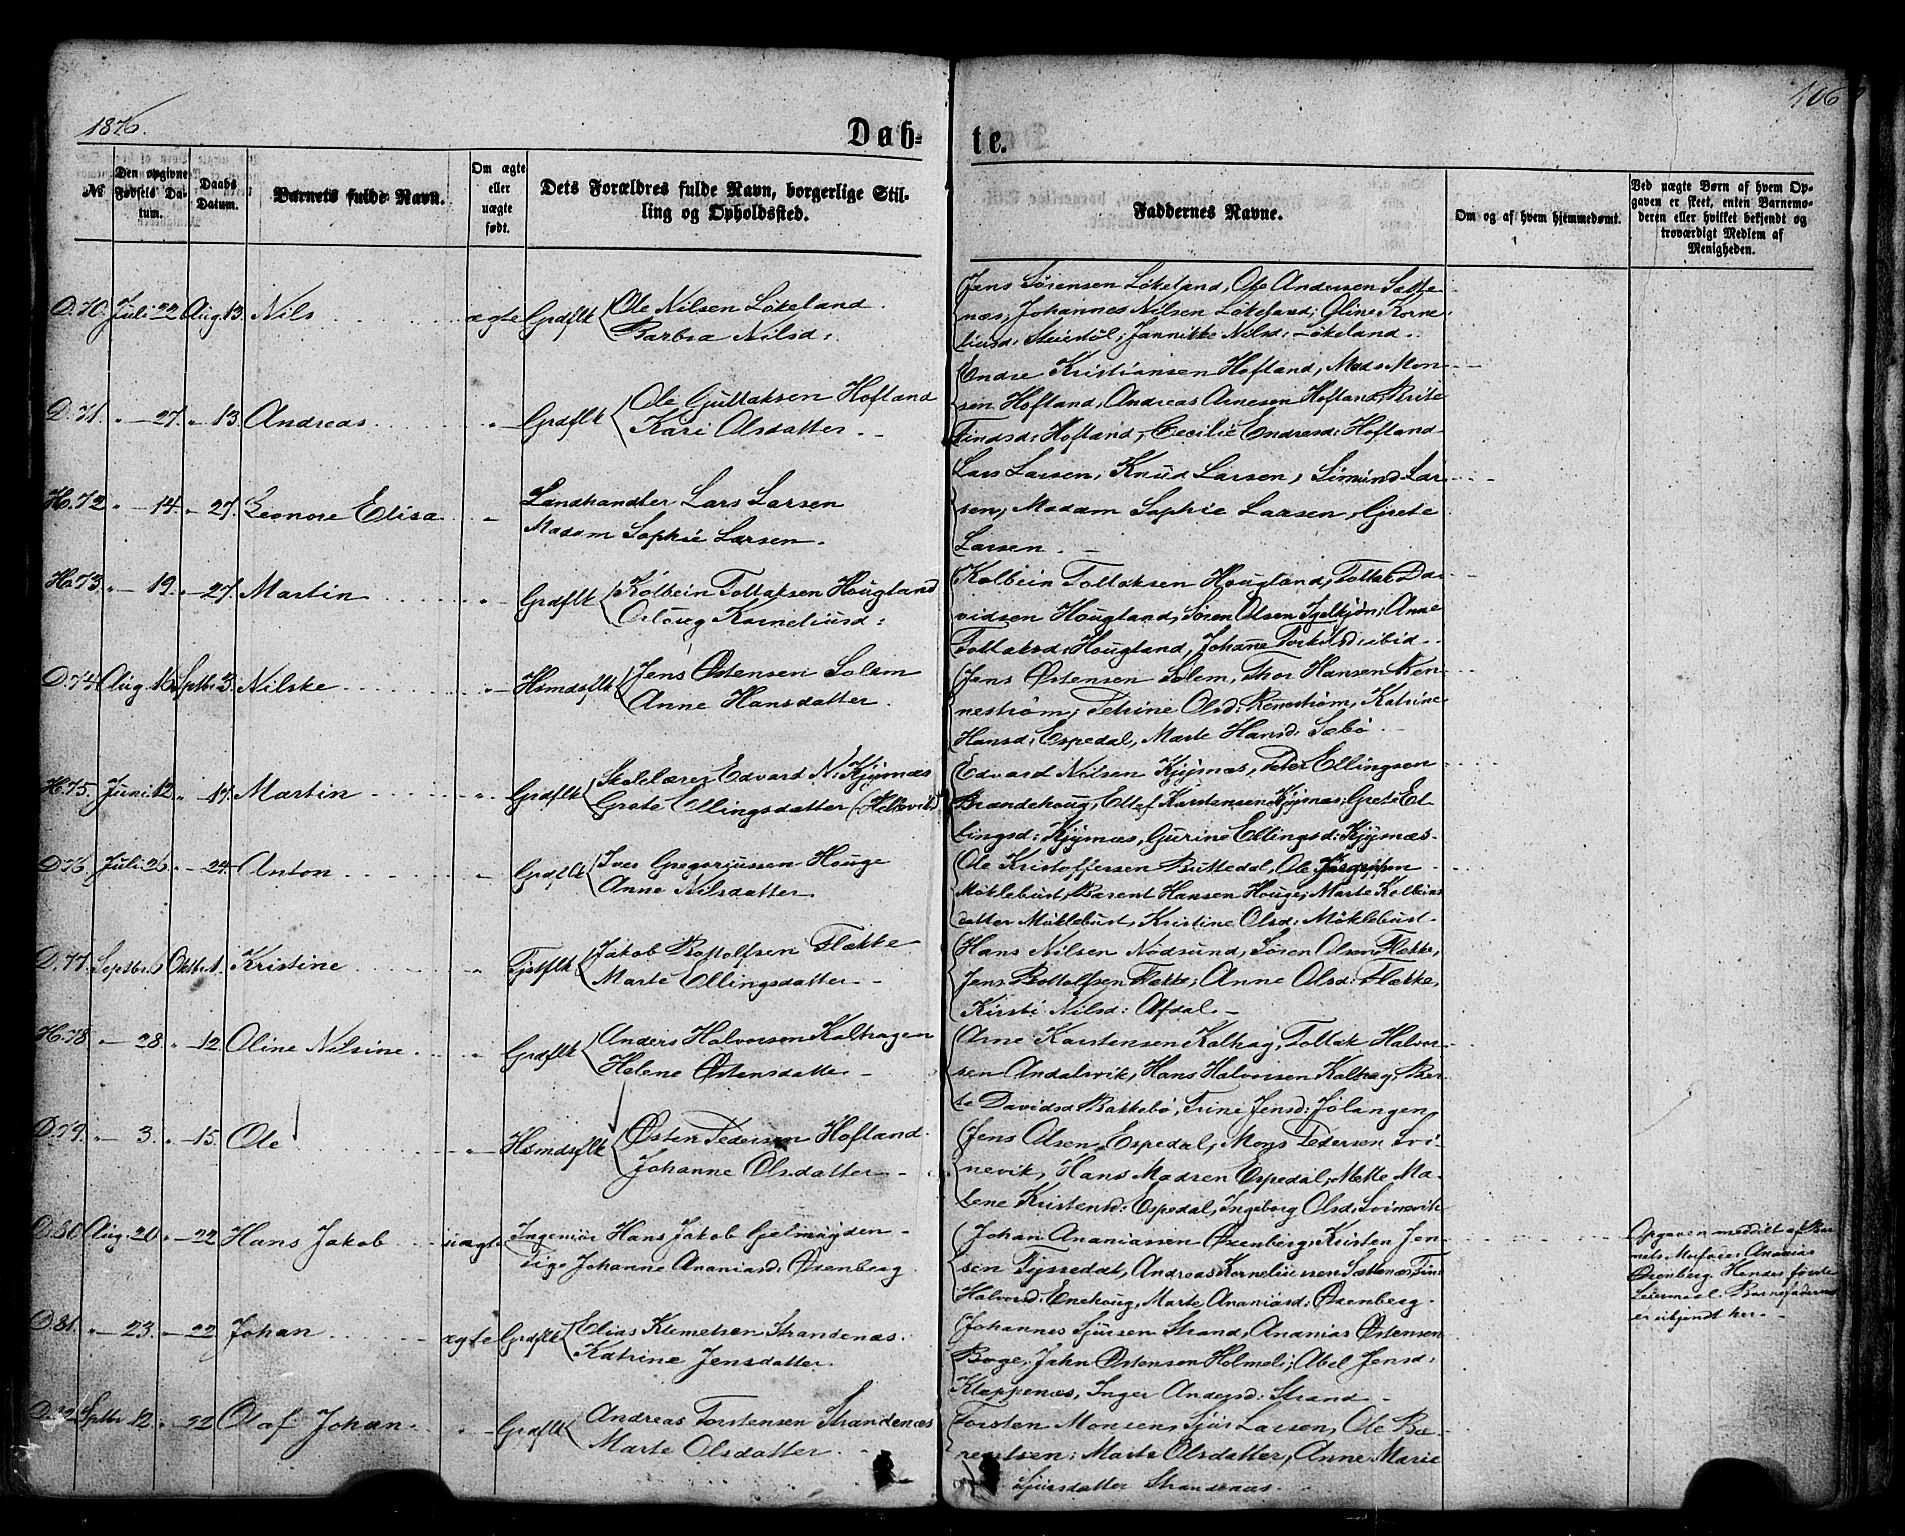 1876.
106
Døb-
te.
№
Den opgivne Fødsels Datum.
Daabs Datum.
Barnets fulde Navn.
Om ægte eller uægte født.
Dets Forældres fulde Navn, borgerlige Stilling og Opholdssted.
Faddernes Navne.
Om og af hvem hjemmedøbt.
Ved uægte Børn af hvem Opgaven er skeet, enten Barnemoderen eller hvilket bekjendt og troværdigt Medlem af Menigheden.
D. 70. Juli 22 Aug. 13. Nils ægte Grdflk Ole Nilsen Løkeland
Barbra Nilsd:
Jens Sørensen Løkeland, Ole Andersen Sætte
næs, Johannes Nilsen Løkeland, Oline Korne
liusd: Steiedøl, Jannikke Nilsd: Løkeland.
D. 71. " 27. " 13. Andreas " Grdflk Ole Guttaksen Hofland
Kari Olsdatter
Endre Kristiansen Hofland, Mads Mon
sen Hofland, Andreas Arnesen Hofland, Brite
Findsd: Hofland, Cecilie Endresd: Hofland
H. 72 " 14. " 27. Leonore Elisa " Landhandler Lars Larsen
Madam Sophie Larsen.
Lars Larsen, Knud Larsen, Simund Lar
sen, Madam Sophie Larsen, Grete
Larsen.
H. 73 " 19. " 27. Martin " Grdflk Kolbein Tollaksen Hougland
Orloug Korneliusd:
Kolbein Tollaksen Hougland, Tollak Da
vidsen Hougland, Søren Olsen Igelkjøn, Anne
Tollaksd: Hougland, Johanne Torkilsd: ibid.
D. 74. Aug. 16 Septbr 3. Nilske " Hsmdsflk Jens Østensen Solem
Anne Hansdatter.
Jens Østensen Solem, Thor Hansen Ren
nestrøm, Petrine Olsd: Rennestrøm, Katrine
Hansd: Espedal, Marte Hansd: Sæbø
H. 75. Juni 12 " 17. Martin " Grdflk Skolelærer Edvard N. Kjymæs
Grete Ellingsdatter
Edvard Nilsen Kjymæs, Peder Ellingsen
Brandehoug, Ellef Karstensen Kjymæs, Grete El
lingsd: Kjymæs, Gurine Ellingsd: Kjymæs
D. 76. Juli 26 " 24 Anton " Grdflk Iver Gregoriussen Houge
Anne Nilsdatter.
Ole Kristoffersen Bittedal, Ole
Møklebust, Barent Hansen Houge, Marte Kolbeins
datter Møklebust, Kristine Olsd: Møklebust
D. 77. Septbr. 6 Oktbr. 1. Kristine " Tjstflk Jakob Bottolfsen Flække
Marte Ellingsdatter
Hans Nilsen Nødsund, Søren Olsen Flække,
Jens Bottolfsen Flække, Anne Olsd: Flække,
Kirsti Nilsd: Afdal.
H. 78. " 28 " 12. Oline Nilsine " Grdflk Anders Halvorsen Kalhagen
Helene Østensdatter
Arne Karstensen Kalhag, Tollak Halvor
sen Andalsvik, Hans Halvorsen Kalhag, Ber
te Davidsd Bakkebø, Trine Jensd: Jølangen
D. 79. " 3. " 15. Ole " Hsmdsflk Østen Pedersen Hofland
Johanne Olsdatter
Jens Olsen Espedal, Mons Pedersen Svi
nevik, Hans Madsen Espedal, Mette Ma
lene Kristensd: Espedal, Ingeborg Olsd: Svinevik
D. 80. Aug. 20 " 22 Hans Jakob uægte Ingeniør Hans Jakob Gjelmuyden
Pige Johanne Ananiasd: Øxenberg
Johan Ananiassen Øxenberg, Kristen Jen
sen Tyssedal, Andreas Korneliussen Sættenæs, Tine
Halvorsd: Enehoug, Marte Ananiasd: Øxenberg
Opgaven meddelt af Bar
nets Morfader Ananias
Øxenberg. Hendes første
Leiermaal. Barnefaderen
er ukjendt her.
D. 81. " 23. " 22 Johan ægte Grdflk Elias Klemetsen Strandenæs.
Katrine Jensdatter.
Johannes Sjursen Strand, Ananias Østensen
Boge, John Østensen Holmeli, Abel Jensd:
Kleppenæs, Inger Andersd: Strand
D. 82 Septbr 12. " 22 Olaf Johan " Grdflk Andreas Torstensen Strandenæs
Marte Olsdatter
Torsten Monsen, Sjur Larsen, Ole Be
rentsen, Marte Olsdatter, Anne Marie
Sjursdatter Strandenæs.